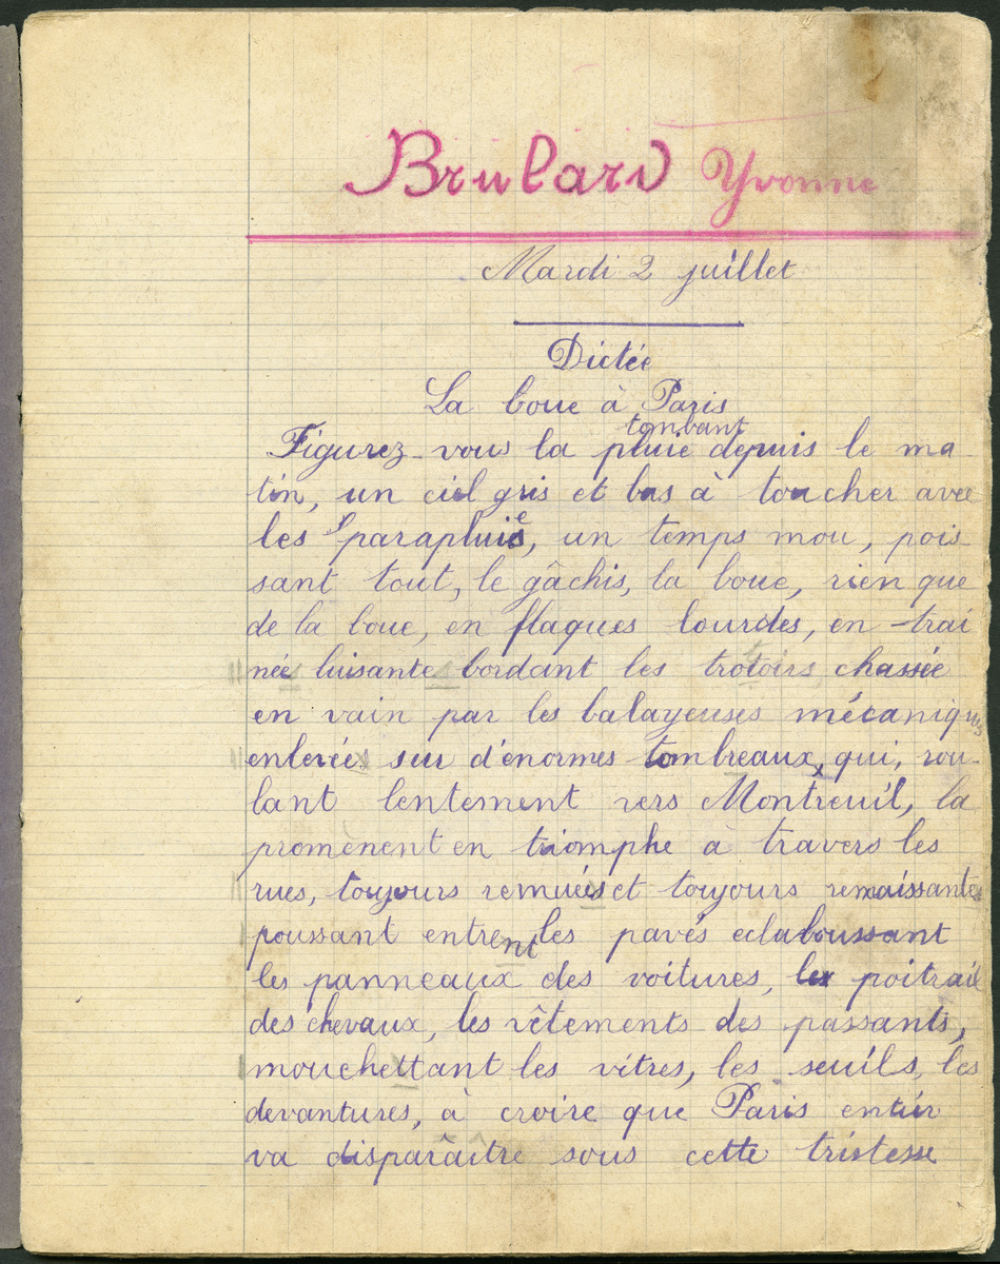 Brulard Yvonne
Mardi 2 juillet
Dictée
La boue à Paris
tombant
Figurez-vous la pluie depuis le ma-
tin, un ciel gris et bas à toucher avec
les parapluie, un temps mou, pois-
sant tout, le gâchis, la boue, rien que
de la boue, en flaques lourdes, en traî
nées luisantes bordant les trotoirs chassée
en vain par les balayeuses mécaniques
enlevée sur d'énormes tombreaux, qui, rou-
lant lentement vers Montreuil, la
promènent en triomphe à travers les
rues, toujours remuées et toujours renaissantes
poussant entrent les pavés eclaboussant
les panneaux des voitures, les poitrail
des chevaux, les vêtements des passants,
mouchettant les vitres, les seuils, les
devantures, à croire que Paris entier
va disparaître sous cette tristesse